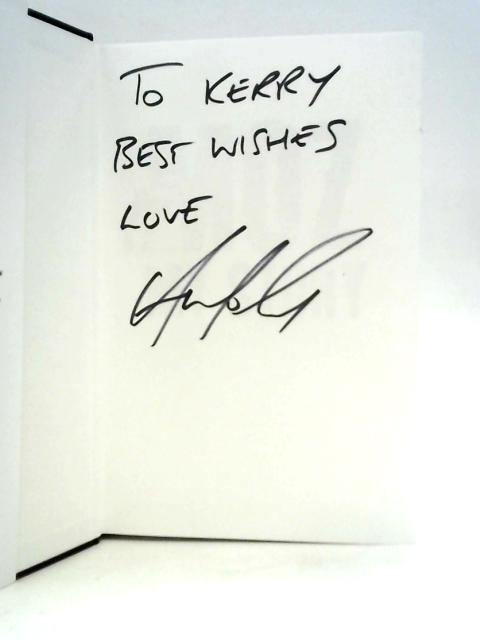 TO KERRY
BEST WISHES
LOVE